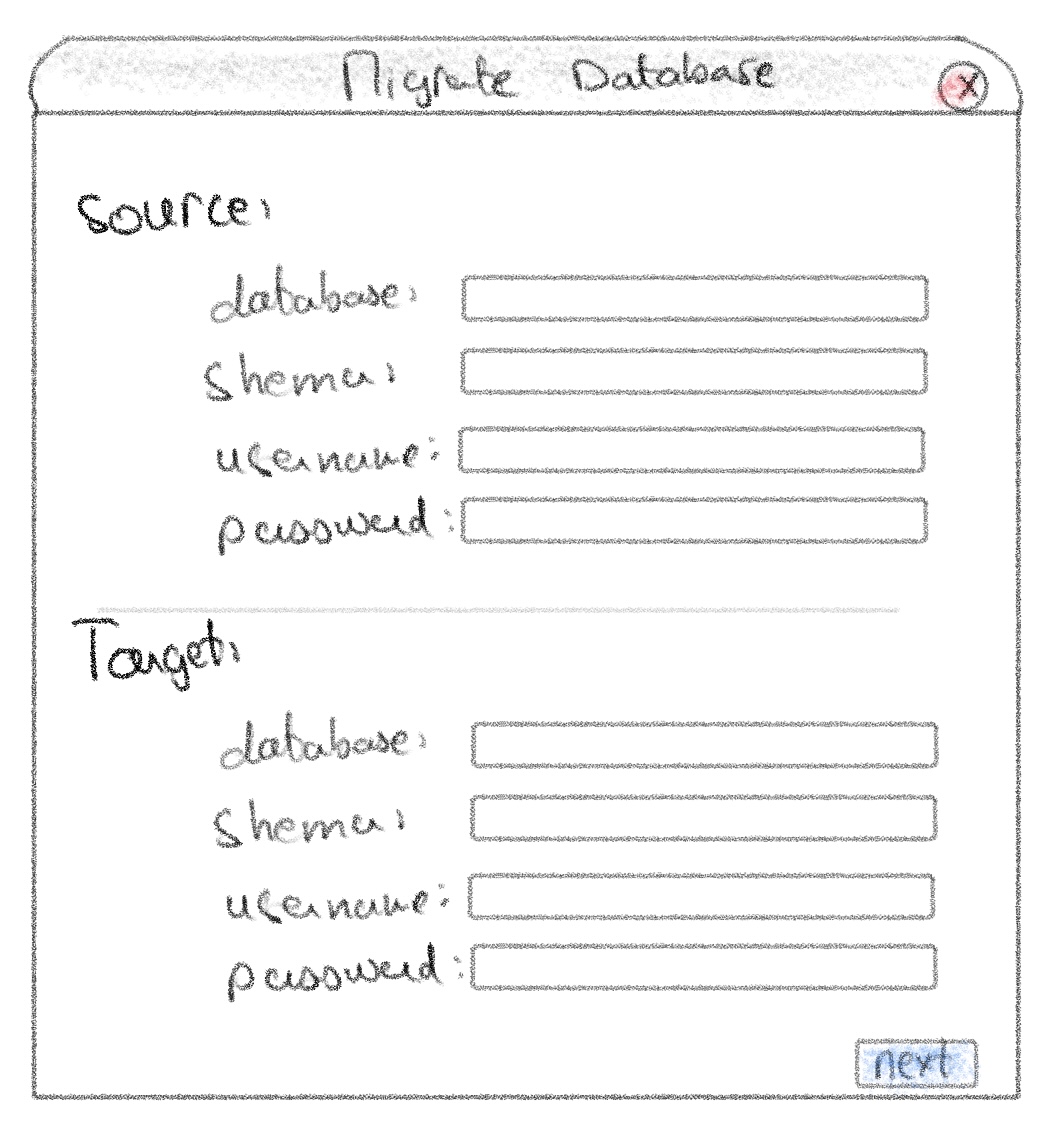 Migrate Database
X
Source:
database:
Shema:
username:
password:
Target:
database:
Shema:
username:
password:
next